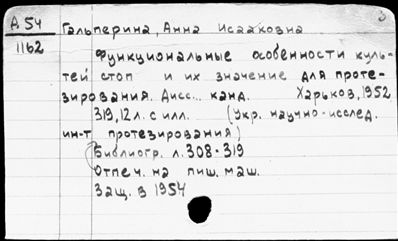 Д 54 Гальперина, Анна Исааковна
1162
Функциональные особенности куль-
тей стоп и их значение для проте-
зирования. Дисс... канд. Харьков, 1952
319, 12 л. с илл. (Укр. научно-исслед.
ин-т протезирования)
(Библиогр. л. 308-319
Отпеч. на пиш. маш.
Защ. в 1954